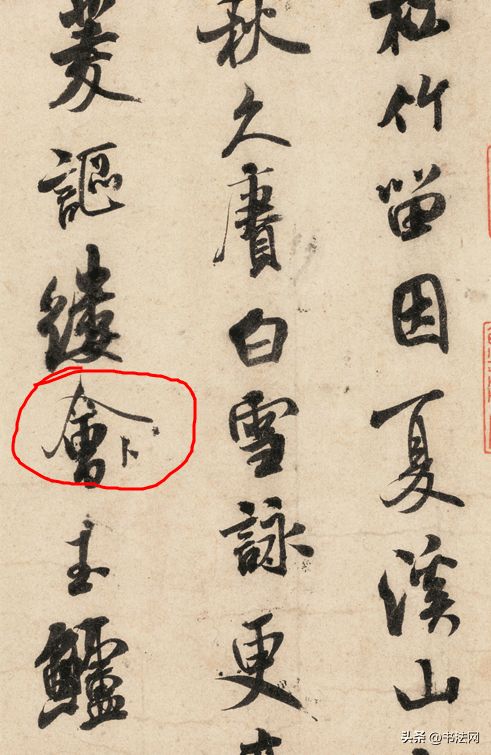 松竹留因夏溪山
秋久賡白雪詠更
菱謳縷會卜玉鱸
头条 @书法网